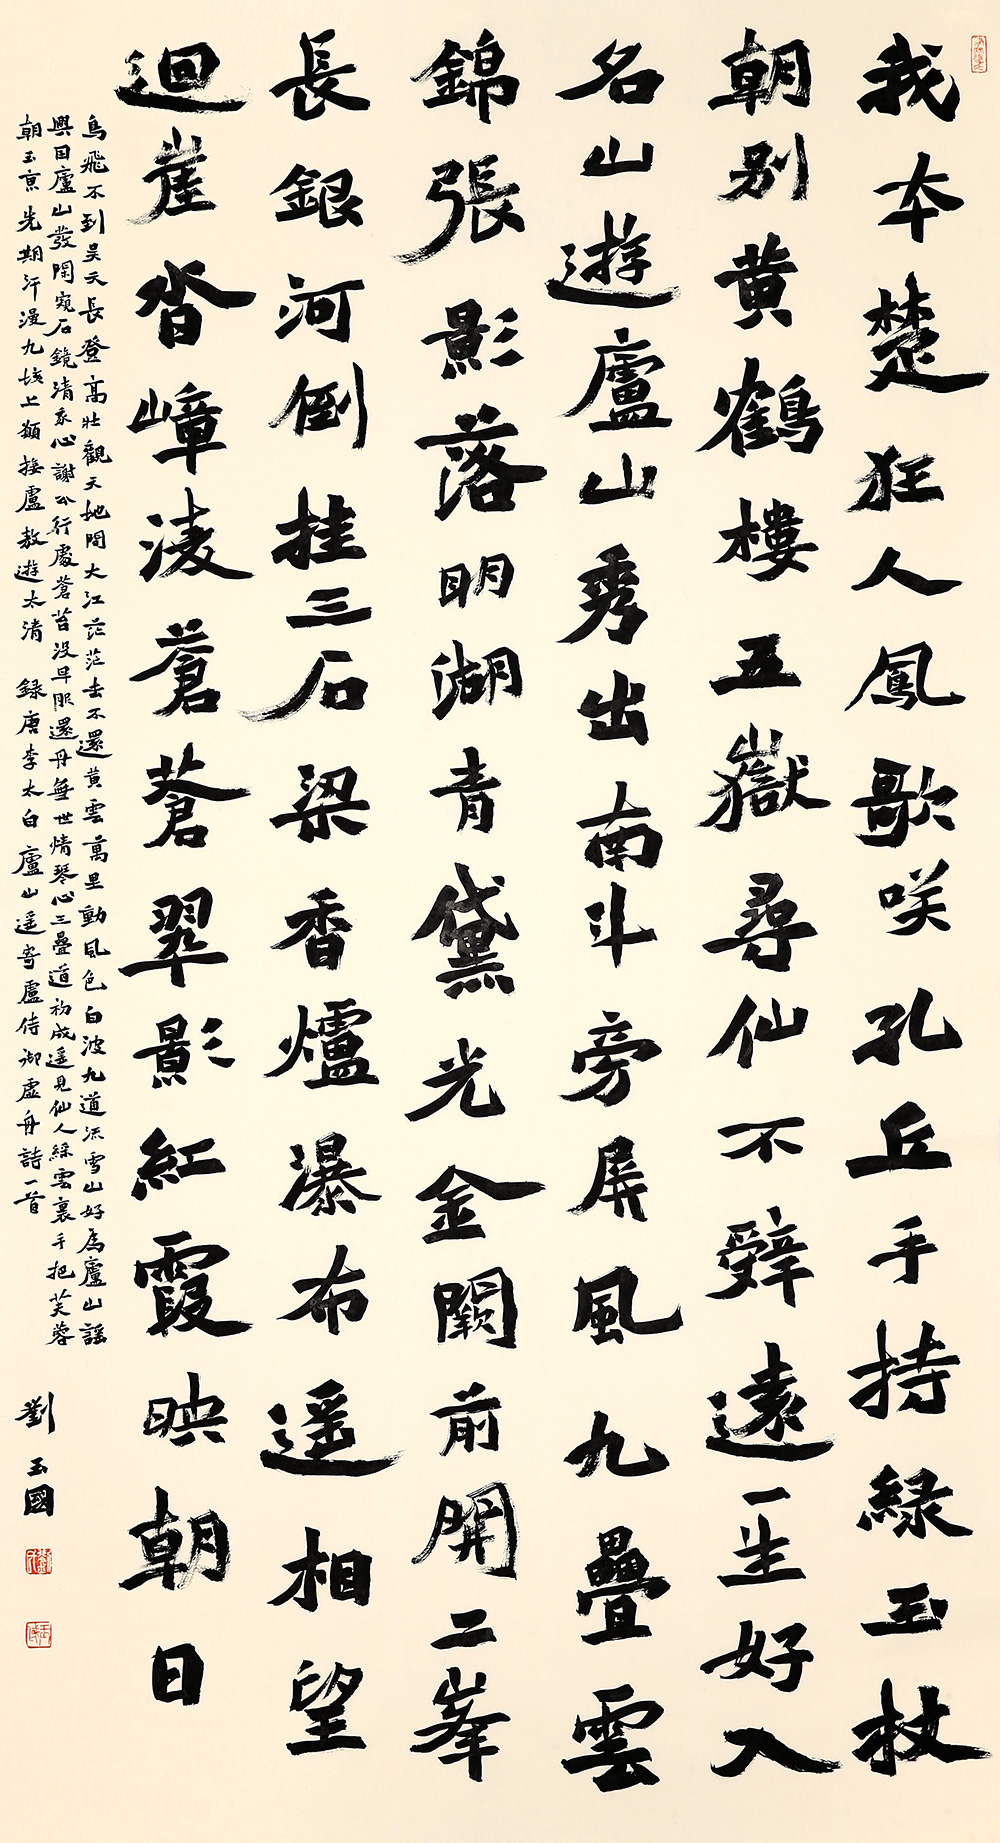 我本楚狂人鳳歌咲孔丘手持緑玉杖
朝别黄鶴樓五嶽尋仙不辤遠一生好入
名山遊廬山秀出南斗旁屏風九疊雲
錦張影落明湖青黛光金闕前開二峯
長銀河倒挂三石梁香爐瀑布遥相望
迴崖沓嶂凌蒼蒼翠影紅霞映朝日
鳥飛不到吴天長登高壯觀天地間大江茫茫去不還黄雲萬里動風色白波九道流雪山好爲廬山謠
興因廬山發閑窺石鏡清我心謝公行處蒼苔没早服還丹無世情琴心三疊道初成遥見仙人綵雲裏手把芙蓉
朝玉京先期汗漫九垓上願接盧敖遊太清 録唐李太白廬山遥寄盧侍御虚舟詩一首
劉玉國